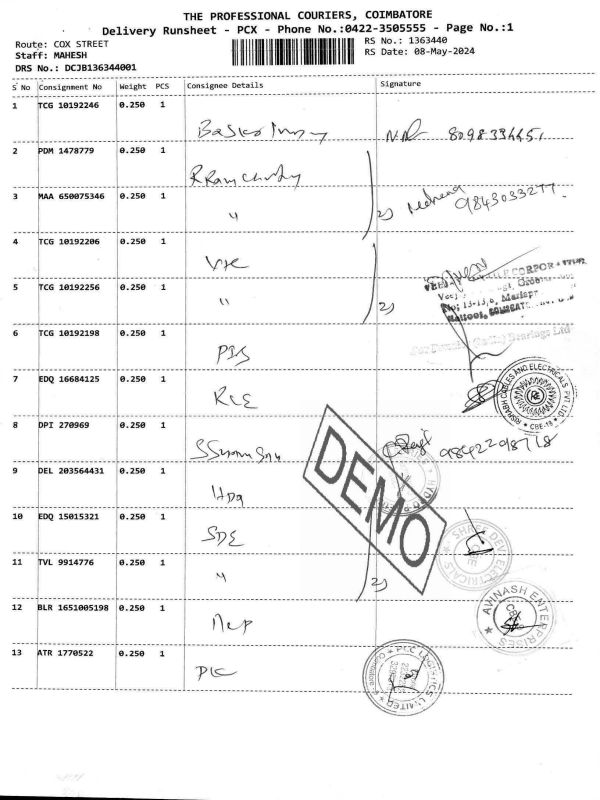 THE PROFESSIONAL COURIERS, COIMBATORE
Delivery Runsheet - PCX - Phone No.:0422-3505555 - Page No.:1
Route: COX STREET
Staff: MAHESH
DRS No.: DCJB136344001
RS No.: 1363440
RS Date: 08-May-2024
S No Consignment No Weight PCS Consignee Details Signature
1 TCG 10192246 0.250 1
2 PDM 1478779 0.250 1
3 MAA 650075346 0.250 1 " 2) 9843033277.
4 TCG 10192206 0.250 1
5 TCG 10192256 0.250 1 " 2)
6 TCG 10192198 0.250 1
7 EDQ 16684125 0.250 1 RCE
RISHABH CABLES AND ELECTRICALS PVT LTD
CBE-18
8 DPI 270969 0.250 1 9842298718
9 DEL 203564431 0.250 1
DEMO
10 EDQ 15015321 0.250 1 SDE
SHREE DEV ELECTRICALS
11 TVL 9914776 0.250 1 " 2)
12 BLR 1651005198 0.250 1
AVINASH ENTERPRISES
13 ATR 1770522 0.250 1 PLC
LOGISTICS LIMITED